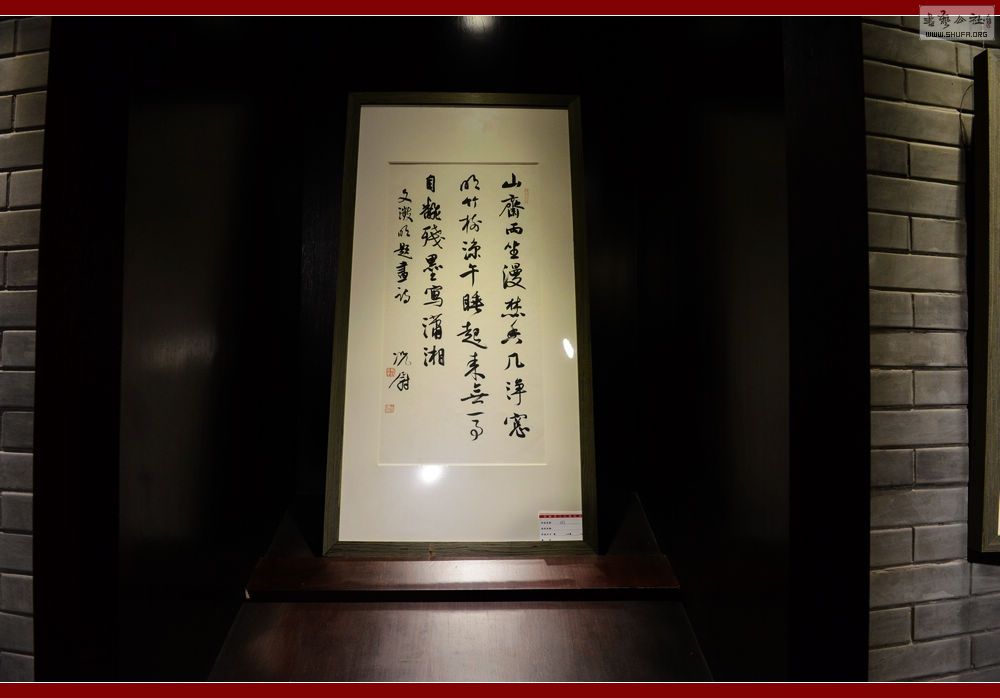 山齋雨坐漫焚香几淨窓
明竹樹涼午睡起來無一事
自殘墨寫瀟湘
文徵明題畫詩
況尉
書藝公社
WWW.SHUFA.ORG